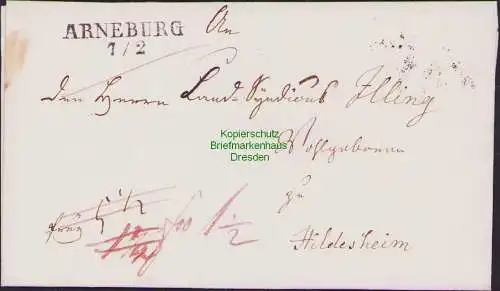 ARNEBURG
7/2
An
den Herrn Land-Syndicus Illing
Kopierschutz
Briefmarkenhaus
Dresden
Wohlgeboren
zu
Hildesheim
1/2